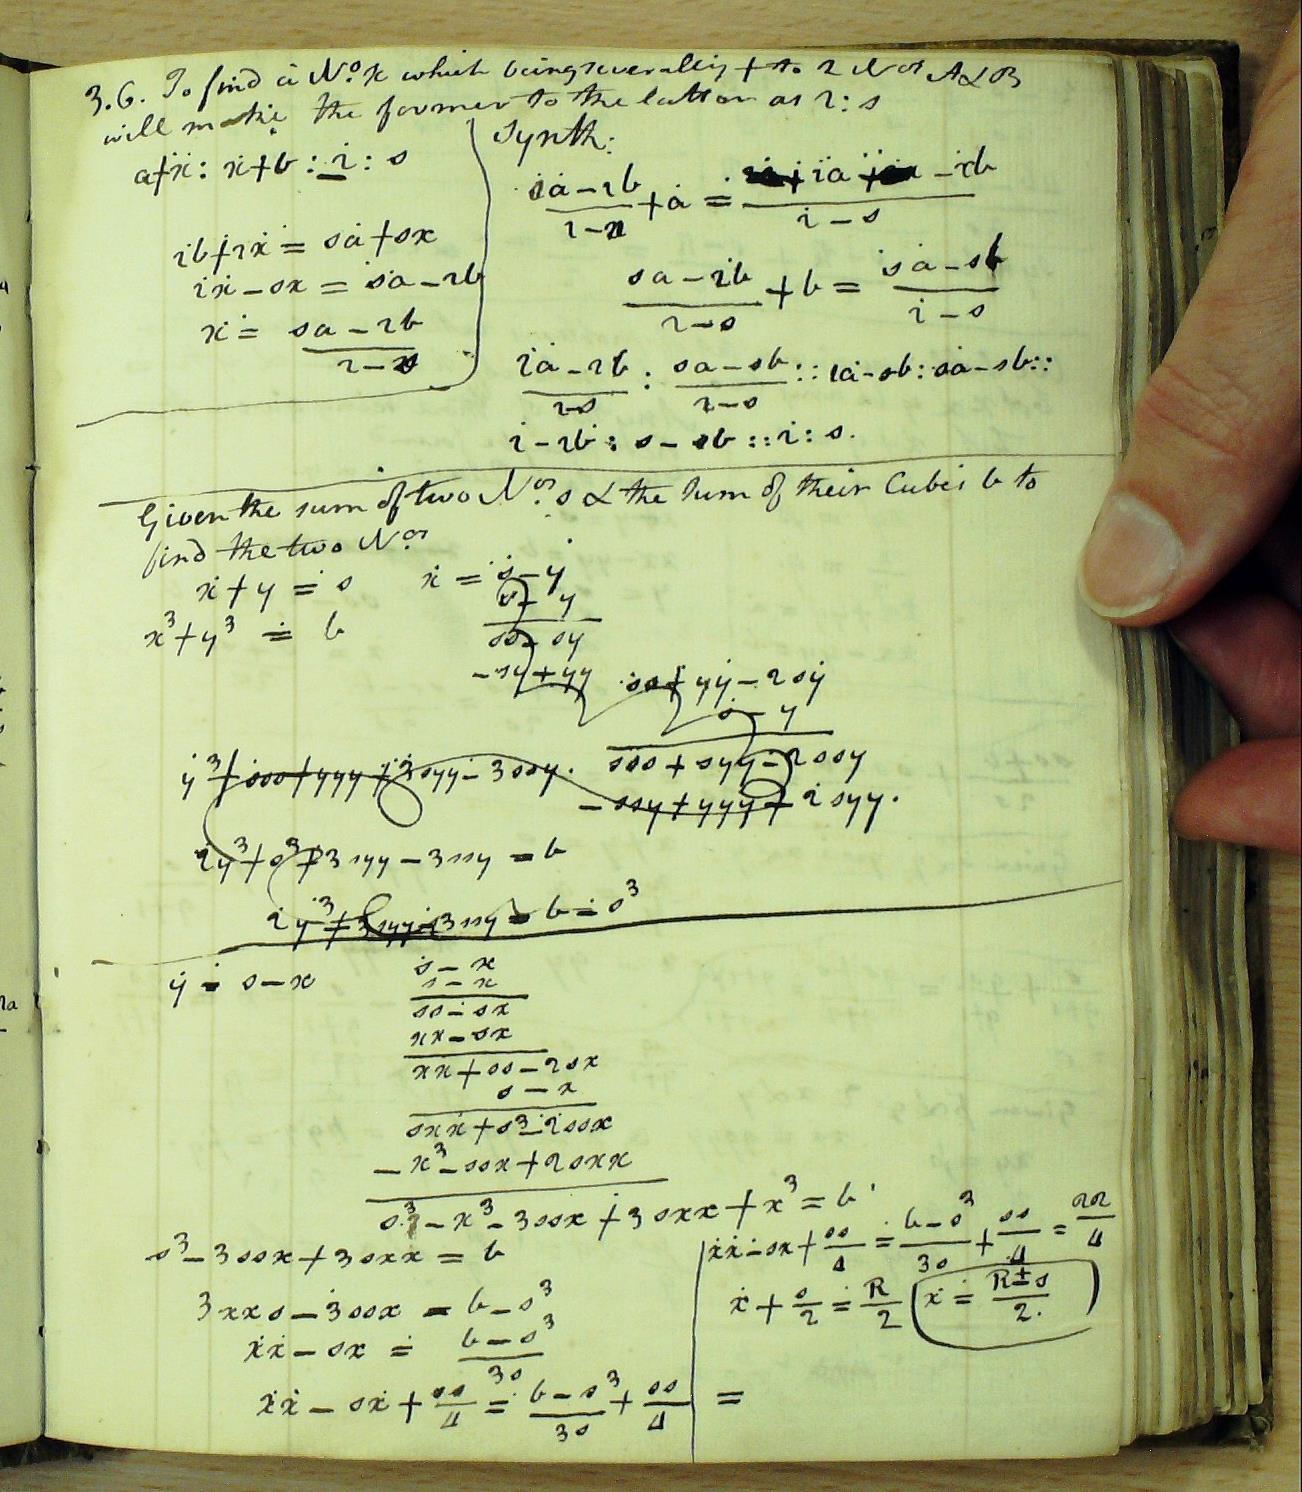 3.6. To find a No. x which being severally + to 2 Nos A & B
will make the former to the latter as r : s
a+x : x+b : r : s
rb+rx = sa+sx
rx - sx = sa - rb
x = (sa - rb)/(r - s)
Synth:
(sa - rb)/(r - s) + a = (ra - rb)/(r - s)
(sa - rb)/(r - s) + b = (sa - sb)/(r - s)
(ra - rb)/(r-s) : (sa - sb)/(r-s) :: ra - sb : sa - sb ::
r - rb : s - sb :: r : s.
Given the sum of two Nos. s & the sum of their Cubes b to
find the two Nos
x + y = s x = s - y
s - y
x³ + y³ = b
ss - sy
- sy + yy
ss + yy - 2sy
s - y
y³ + sss + yyy + 3syy - 3ssy. sss + syy - 2ssy
- ssy + yyy + 2syy.
2y³ + s³ + 3syy - 3ssy = b
2y³ + 3syy - 3ssy = b - s³
y = s - x
s - x
s - x
ss - sx
xx - sx
xx + ss - 2sx
s - x
sxx + s³ - 2ssx
- x³ - ssx + 2sxx
s³ - x³ - 3ssx + 3sxx + x³ = b
s³ - 3ssx + 3sxx = b
3xxs - 3ssx = b - s³
xx - sx = (b - s³)/3s
xx - sx + ss/4 = (b - s³)/3s + ss/4 =
xx - sx + ss/4 = (b - s³)/3s + ss/4 = RR/4
x + s/2 = R/2 x = (R ± s)/2.